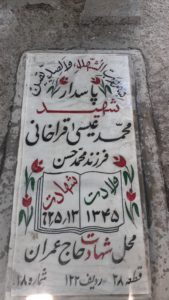 پاسدار
شهید
محمد عیسی قراخانی
فرزند محمدحسن
ولادت شهادت
۱۳۴۵
محل شهادت حاج عمران
قطعه ۲۸ ردیف ۱۲۲ شماره ۱۸